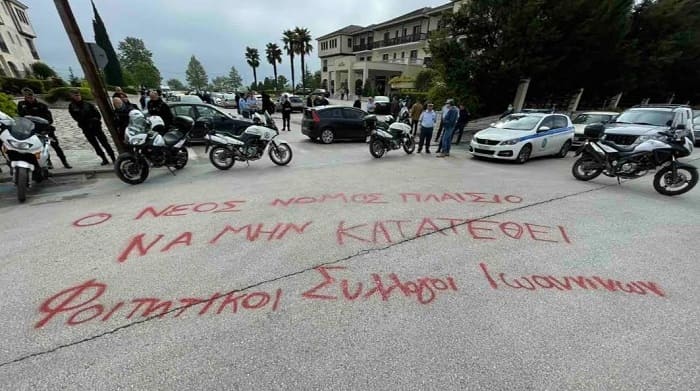 Ο ΝΕΟΣ ΝΟΜΟΣ ΠΛΑΙΣΙΟ
ΝΑ ΜΗΝ ΚΑΤΑΤΕΘΕΙ
Φοιτητικοι Συλλογοι Ιωαννινων